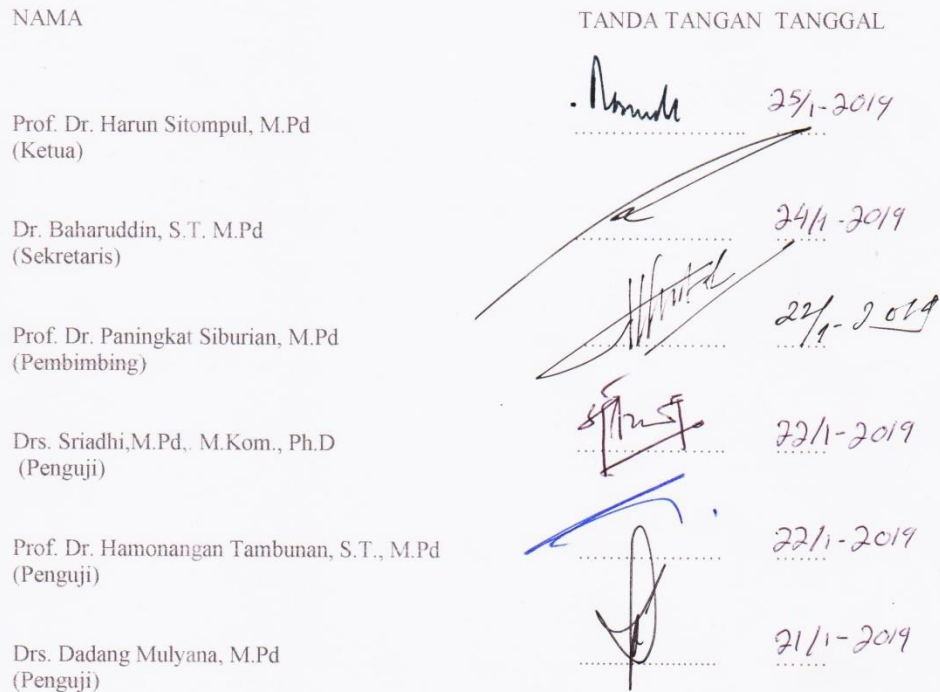 NAMA TANDA TANGAN TANGGAL
25/1-2019
Prof. Dr. Harun Sitompul, M.Pd
(Ketua)
24/1-2019
Dr. Baharuddin, S.T. M.Pd
(Sekretaris)
22/1-2019
Prof. Dr. Paningkat Siburian, M.Pd
(Pembimbing)
22/1-2019
Drs. Sriadhi,M.Pd,. M.Kom., Ph.D
(Penguji)
22/1-2019
Prof. Dr. Hamonangan Tambunan, S.T., M.Pd
(Penguji)
21/1-2019
Drs. Dadang Mulyana, M.Pd
(Penguji)